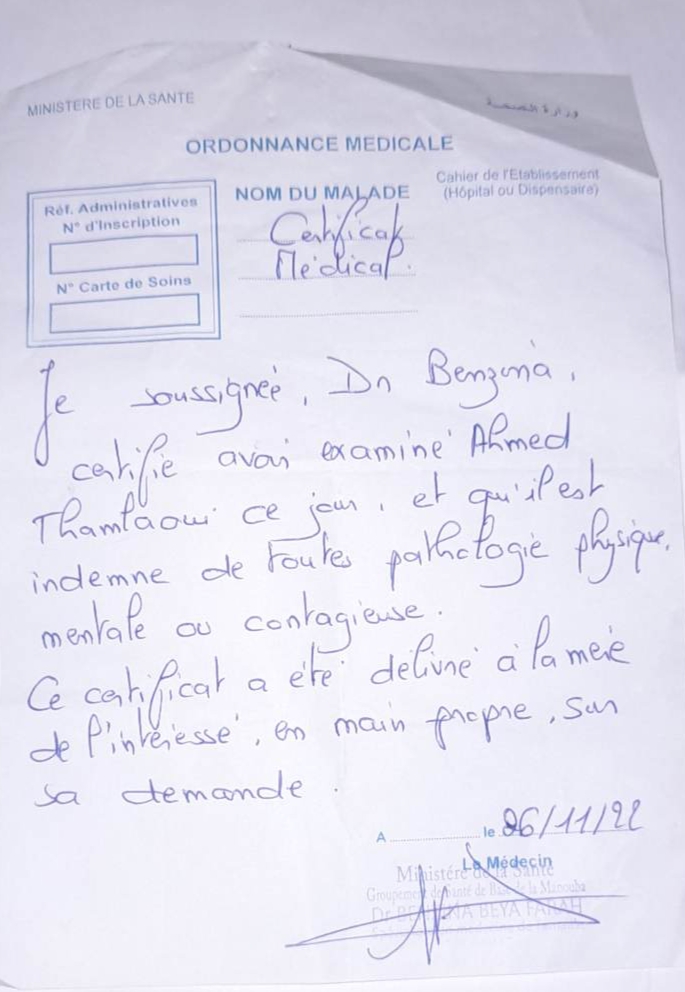 MINISTERE DE LA SANTE
وزارة الصحة
ORDONNANCE MEDICALE
Cahier de l'Etablissement
(Hôpital ou Dispensaire)
Réf. Administratives
N° d'Inscription
N° Carte de Soins
NOM DU MALADE
Certificat
Médical.
Je soussigneé, Dr Benzina,
certifie avoir examiné Ahmed
Thamlaoui ce jour, et qu'il est
indemne de toutes pathologie physique,
mentale ou contagieuse.
Ce certificat a été délivré à la mère
de l'intéressé, en main propre, sur
sa demande.
A le 06/11/22
Le Médecin
Ministère de la Santé
Groupement de Santé de Base de la Manouba
Dr BEYA FARAH